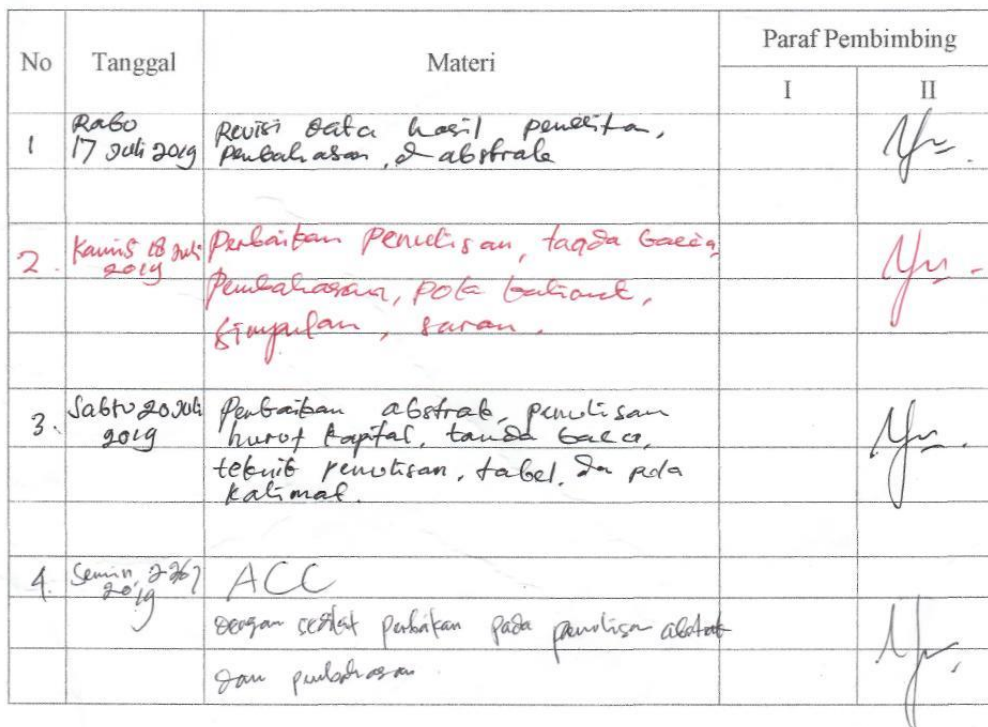 No Tanggal Materi Paraf Pembimbing
I II
1 Rabo Revisi data hasil penelitian,
17 Juli 2019 pembahasan, & abstrak
2. Kamis 18 Juli Perbaikan penulisan, tanda baca,
2019
Pembahasan, pola kalimat,
simpulan, saran.
3. Sabtu 20 Juli Perbaikan abstrak, penulisan
2019 huruf kapital, tanda baca,
teknik penulisan, tabel, dan pola
kalimat.
4. Senin, ACC
2019
dengan sedikit perbaikan pada penulisan abstrak
dan pembahasan